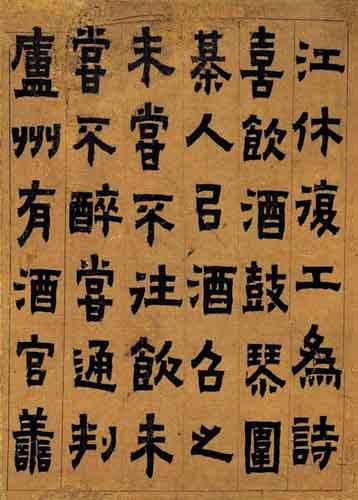 江休復工爲詩
喜飲酒鼓琴圍
棊人㠯酒召之
未嘗不往飲未
嘗不醉嘗通判
盧州有酒官善